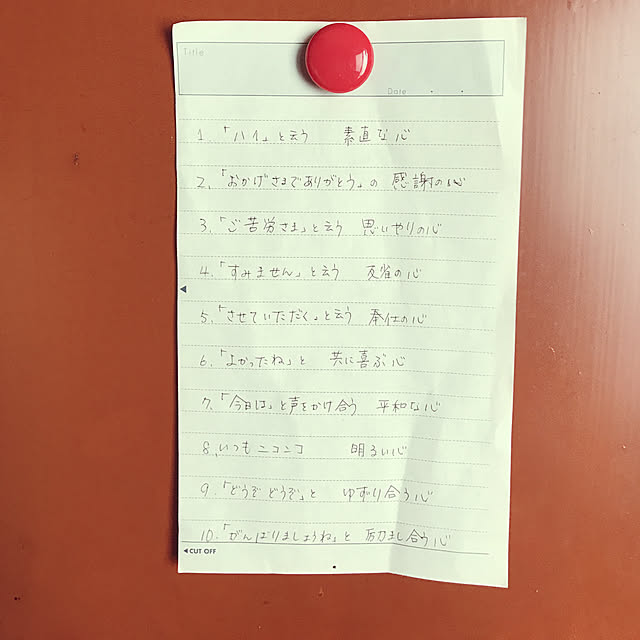 Title
Date ・ ・
1. 「ハイ」と云う 素直な心
2. 「おかげさまでありがとう」の 感謝の心
3. 「ご苦労さま」と云う 思いやりの心
4. 「すみません」と云う 反省の心
5. 「させていただく」と云う 奉仕の心
6. 「よかったね」と 共に喜ぶ心
7. 「今日は」と声をかけ合う 平和な心
8. いつもニコニコ 明るい心
9. 「どうぞ どうぞ」と ゆずり合う心
10. 「がんばりましょうね」と 励まし合う心
◀ CUT OFF